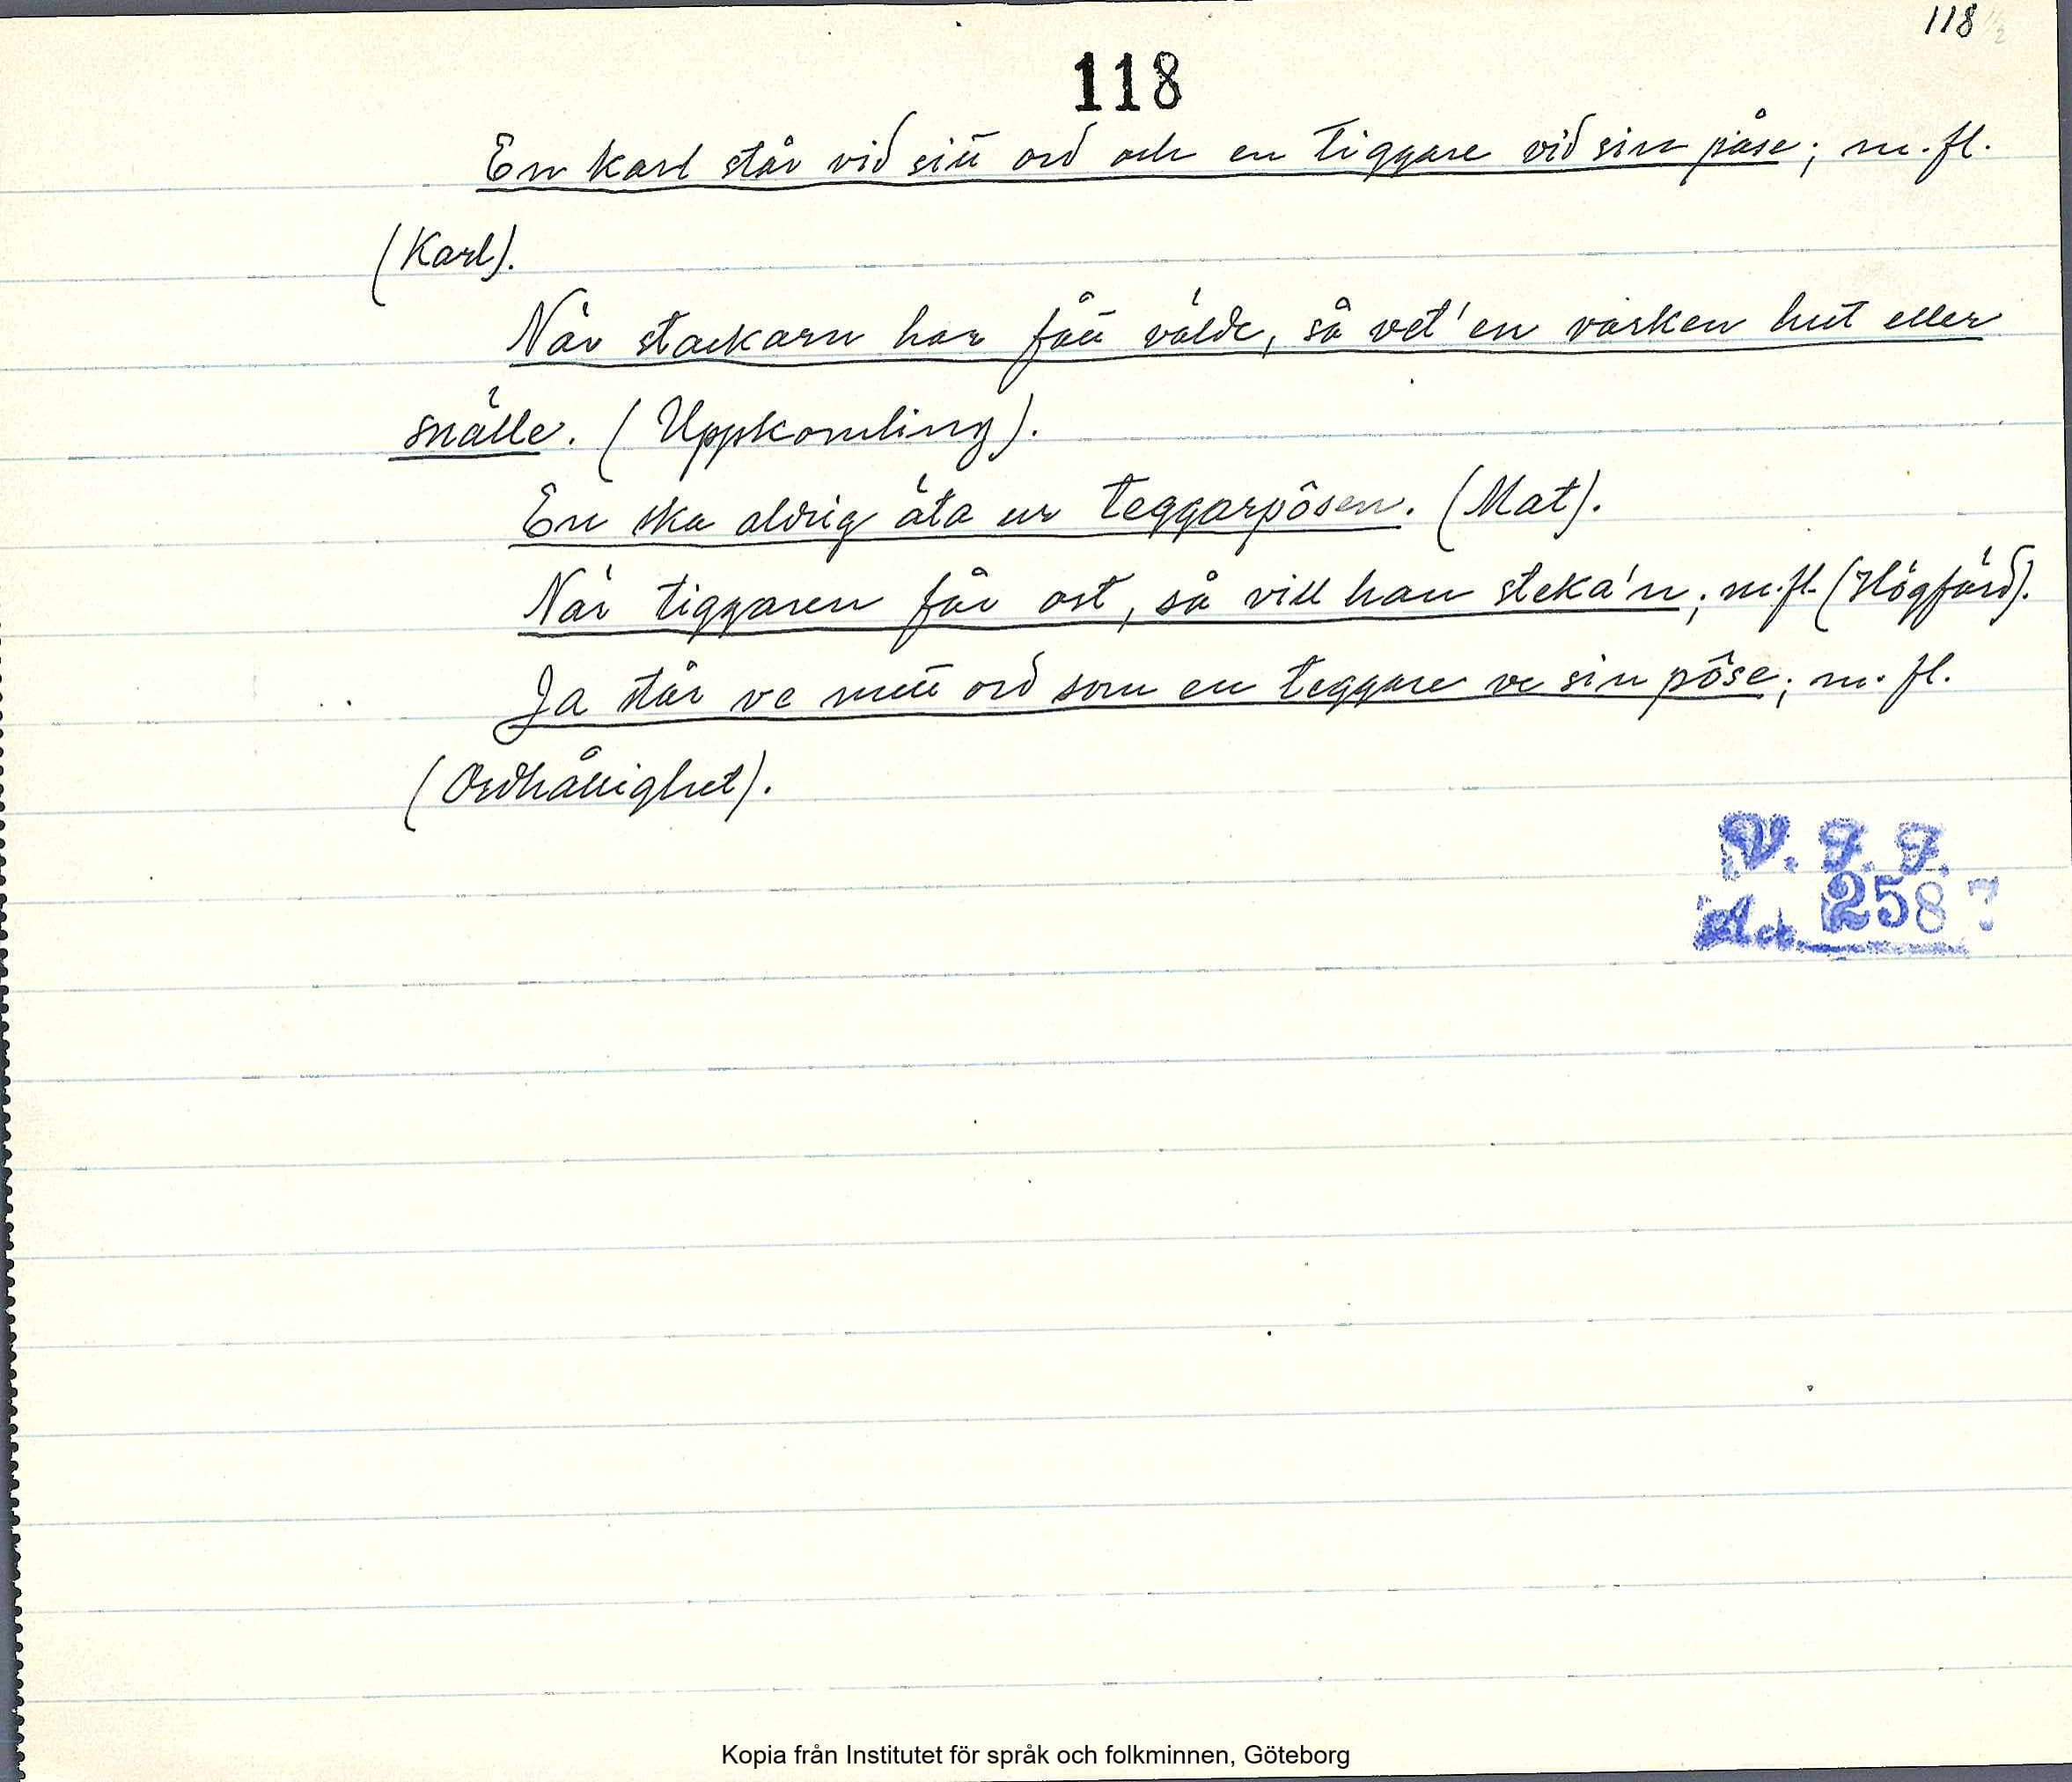 118
118
En karl står vid sitt ord och en tiggare vid sin påse; m. fl.
(Karl).
När stackarn har fått välde, så vet'en varken hut eller
snälle. (Uppkomling).
En ska aldrig äta ur teggarpôsen. (Mat).
När tiggaren får ost, så vill han steka'n; m.fl. (Högfärd).
Ja står ve mitt ord som en teggare ve sin pôse; m. fl.
(Ordhållighet).
V. F. F.
258
Kopia från Institutet för språk och folkminnen, Göteborg